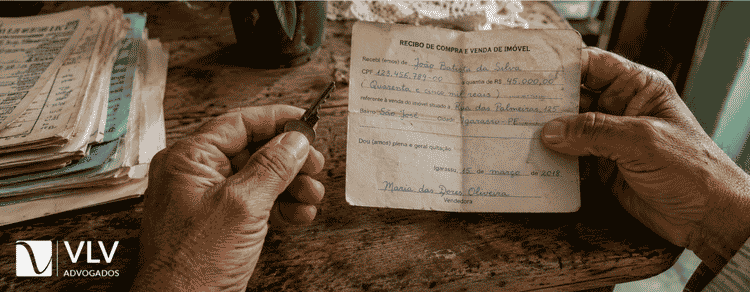 RECIBO DE COMPRA E VENDA DE IMÓVEL
Recebi (emos) de João Batista da Silva
CPF 123.456.789-00 a quantia de R$ 45.000,00
(Quarenta e cinco mil reais)
referente à venda do imóvel situado à Rua das Palmeiras, 125
Bairro São José Igarassu-PE
Dou (amos) plena e geral quitação
Igarassu, 15 de março de 2018
Maria das Dores Oliveira
Vendedora
VLV
ADVOGADOS